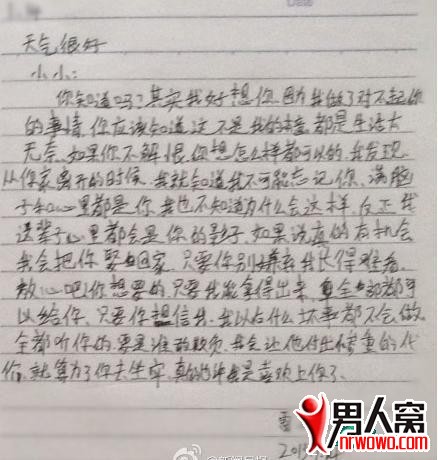 Date
天气很好
小小:
你知道吗?其实我好想你.因为我做了对不起你
的事情.你应该知道这不是我的错.都是生活太
无奈.如果你不解恨.你想怎么样都可以的.我发现
从你家离开的时候.我就知道我不可能忘记你.满脑
子和心里都是你.我也不知道为什么会这样.反正我
这辈子心里都会是你的影子.如果说真的有机会
我会把你娶回家.只要你别嫌弃我长得难看.
放心吧你想要的.只要我能拿得出来.全部都可
以给你.只要你想信我.我以后什么坏事都不会做.
全都听你的要是谁敢欺负.我会让他付出惨重的代
价.就算为了你去坐牢.真的我是喜欢上你了.
2015
男人窝
nrwowo.com